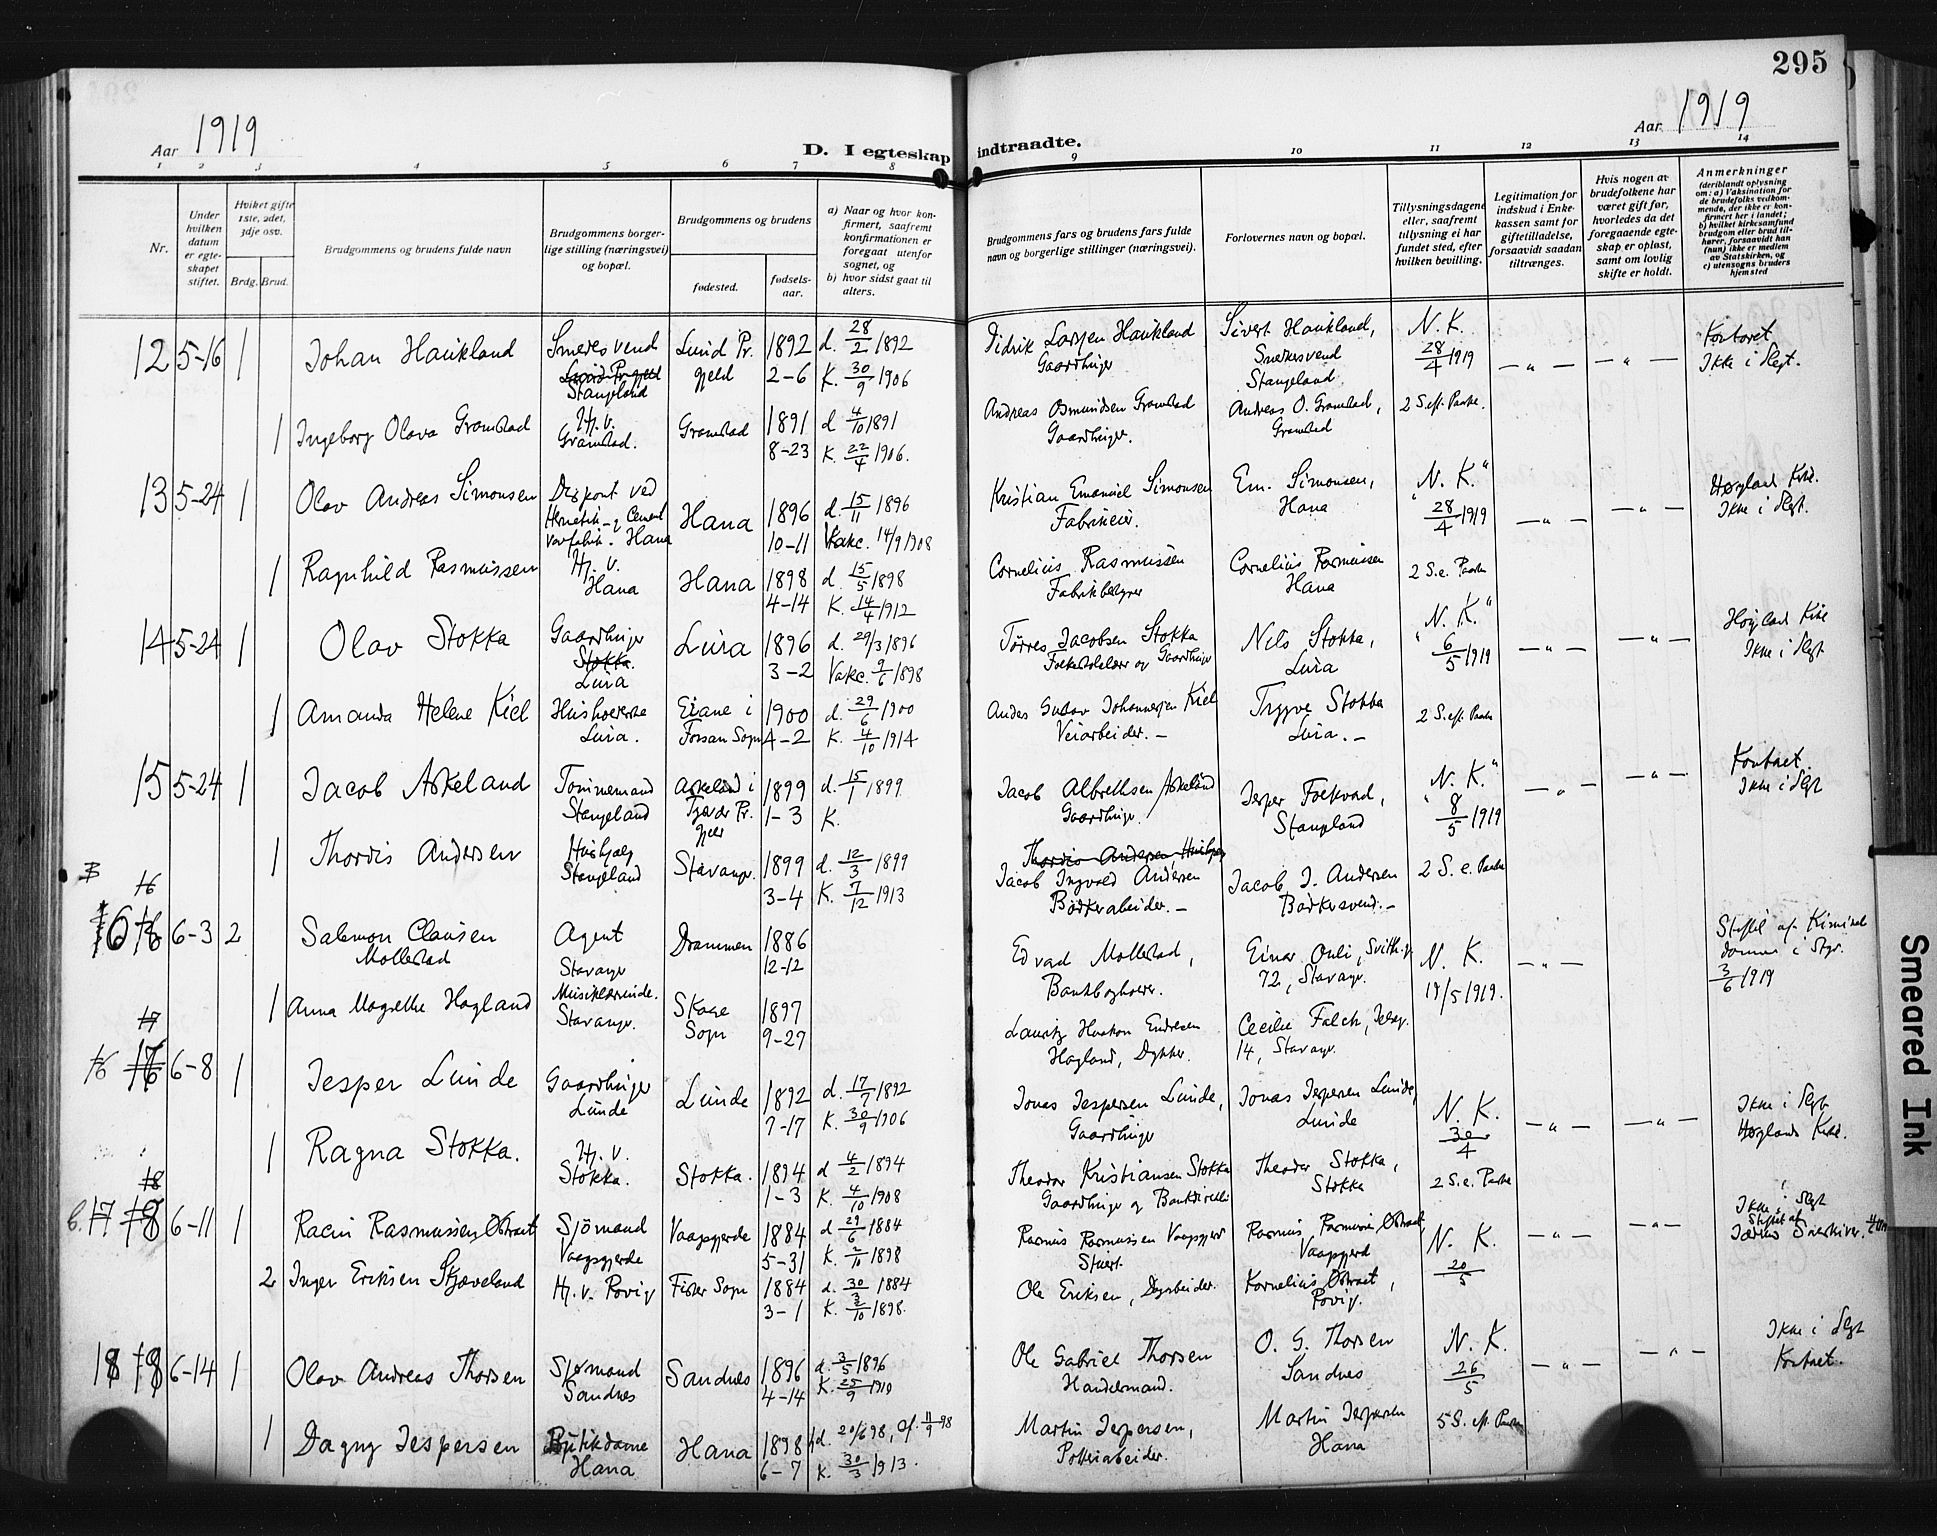 295
Aar 1919
D. I egteskap indtraadte.
Aar 1919
1 2 3 4 5 6 7 8 9 10 11 12 13 14
Nr.
Under hvilken datum er egteskapet stiftet.
Hviket gifte 1ste, 2det, 3dje osv.
Brdg. Brud.
Brudgommens og brudens fulde navn
Brudgommens borgerlige stilling (næringsvei) og bopæl.
Brudgommens og brudens
fødested.
fødselsaar.
a) Naar og hvor konfirmert, saafremt konfirmationen er foregaat utenfor sognet, og
b) hvor sidst gaat til alters.
Brudgommens fars og brudens fars fulde navn og borgerlige stillinger (næringsvei).
Forlovernes navn og bopæl.
Tillysningsdagene eller, saafremt tillysning ei har fundet sted, efter hvilken bevilling.
Legitimation for indskud i Enkekassen samt for giftetilladelse, forsaavidt saadan tiltrænges.
Hvis nogen av brudefolkene har været gift før, hvorledes da det foregaaende egteskap er opløst, samt om lovlig skifte er holdt.
Anmerkninger
(deriblandt oplysning om: a) Vaksination for de brudefolks vedkommende, der ikke er konfirmert her i landet; b) hvilket kirkesamfund brudgom eller brud tilhører, forsaavidt han (hun) ikke er medlem av Statskirken, og c) utensogns bruders hjemsted
12 5-16 1 Johan Haukland
Smedesvend
Lund Prgjeld
Stangeland
Lund Pr.
gjeld
1892
2-6
d. 28/2 1892
K. 30/9 1906
Didrik Larsen Haukland
Gaardbruger
Sivert Haukland,
Smedesvend
Stangeland
N. K.
28/4 1919
— " — — " —
Kontoret
Ikke i Slegt.
1 Ingeborg Olava Gramstad
Hj. v.
Gramstad.
Gramstad
1891
8-23
d 4/10 1891
K. 22/4 1906.
Andreas Osmundsen Gramstad
Gaardbruger.
Andreas O. Gramstad,
Gramstad
2 S. eft. Paaske.
13 5-24 1 Olav Andreas Simonsen
Disponent ved
Hermetik- og Cement
varefabrik. Hana
Hana
1896
10-11
d. 15/11 1896
Vakc. 14/9 1908
Kristian Emanuel Simonsen
Fabrikeier.
Em. Simonsen,
Hana
N. K.
28/4 1919
— " — — " —
Høyland Kirke.
Ikke i Slegt.
1 Ragnhild Rasmussen
Hj. v.
Hana
Hana
1898
4-14
d. 15/5 1898
K. 14/4 1912
Cornelius Rasmussen
Fabrikbestyrer
Cornelius Rasmussen
Hana
2 S. e. Paaske
14 5-24 1 Olav Stokka
Gaardbruger
Stokka.
Lura
Lura
1896
3-2
d. 29/3 1896
Vakc. 9/6 1898
Tørres Jacobsen Stokka
Folkeskolelærer og Gaardbruger
Nels Stokka,
Lura
N. K.
6/5 1919
— " — — " —
Høyland Kirke
Ikke i Slegt
1 Amanda Helene Kiel
Husholderske
Lura.
Eiane i
Forsan Sogn
1900
4-2
d. 29/6 1900
K. 4/10 1914
Andas Gustav Johannesen Kiel
Veiarbeider. —
Trygve Stokka
Lura. —
2 S. eft. Paaske
15 5-24 1 Jacob Askeland
Tømmermand
Stangeland
Askeland i
Fjære Pr.
gjeld
1899
1-3
d. 15/1 1899
K.
Jacob Albrethsen Askeland
Gaardbruger.
Jesper Folkvord,
Stangeland
N. K.
8/5 1919
— " — — " —
Kontoret.
Ikke i Slegt
1 Thordis Andersen
Hushjælp
Stangeland
Stavanger.
1899
3-4
d. 12/3 1899
K. 7/12 1913
Thordis Andersen, Hushjælp
Jacob Ingvald Andersen
Bødkerarbeider. —
Jacob J. Andersen
Bødkersvend. —
2 S. e. Paaske
16 6-3 2 Salemon Clausen
Mollestad
Agent
Stavanger
Drammen
1886
12-12
Edvard Mollestad,
Bankbogholder.
Einar Ouli, Svithg.
72, Stavanger.
N. K.
19/5 1919.
— " —
Skifte af Kriminal
dommer i Styr.
3/6 1919
1 Anna Magrethe Hogland
Musiklærerinde.
Stavanger.
Skage
Sogn
1897
9-27
Lauritz Haakon Endresen
Hogland, Dykker.
Cecilie Falch,
14, Stavanger.
17 6-8 1 Jesper Lunde
Gaardbruger
Lunde
Lunde
1892
7-17
d. 17/7 1892
K. 30/9 1906
Jonas Jespersen Lunde,
Gaardbruger
Jonas Jespersen Lunde,
Lunde
N. K.
30/4
— " — — " —
Ikke i Slegt
Høylands Kirke.
1 Ragna Stokka.
Hj. v.
Stokka.
Stokka.
1894
1-3
d 4/2 1894
K. 4/10 1908
Theodor Kristiansen Stokka
Gaardbruger og Bankdirektør
Theodor Stokka,
Stokka
2 S. e. Paaske
6-11 1 Racin Rasmussen Østraat
Sjömand
Vaagsgjerde
Vaagsgjerde
1884
5-31
d 29/6 1884
K. 2/10 1898
Rasmus Rasmussen Vaagsgjerd
Stuert.
Rasmus Rasmussen Østraat,
Vaagsgjerd
N. K.
20/5
— " — — " —
Ikke i Slegt
Skiftet af
Jæderens Sorenskriver.
2 Inger Eriksen Skjæveland
Hj. v. Rovig
Fister Sogn
1884
3-1
d. 30/3 1884
K. 2/10 1898.
Ole Eriksen, Dagarbeider.
Kornelius Østraat,
Rovig.
18 6-14 1 Olav Andreas Thorsen
Sjømand
Sandnes
Sandnes
1896
4-14
d. 3/5 1896
K. 25/9 1910
Ole Gabriel Thorsen
Handelsmand.
O. G. Thorsen
Sandnes
N. K.
26/5
— " — — " —
Ikke i Slegt
Kontoret.
1 Dagny Jespersen
Butikdame
Hana
Hana
1898
6-7
hd. 20/6 98, af. 11/9 98
K. 30/3 1913.
Martin Jespersen,
Potteriarbeider.
Martin Jespersen
Hana
5 S. eft. Paaske
Smeared Ink